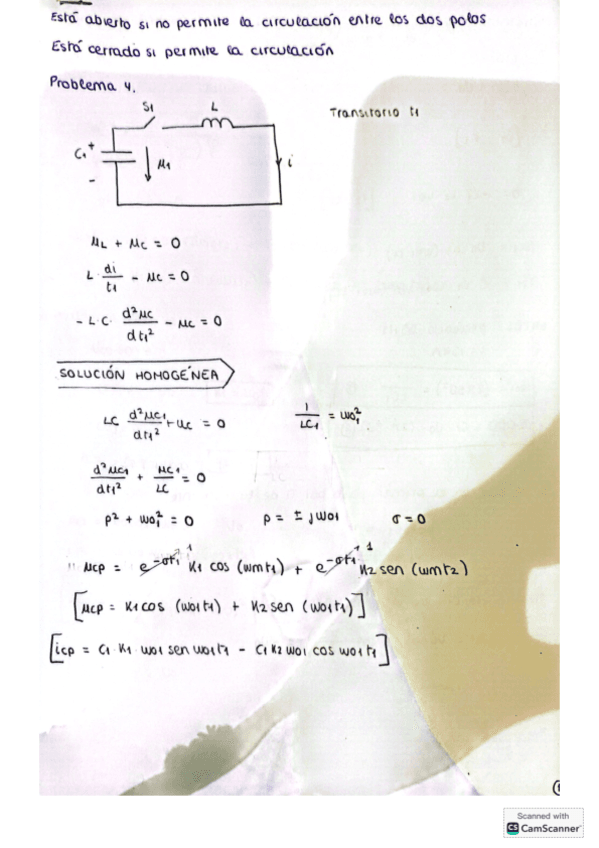 Está abierto si no permite la circulación entre los dos polos
Está cerrado si permite la circulación
Problema 4.
S1 L Transitorio t1
C1 + - μ1 i
μL + μC = 0
L · di/t1 - μC = 0
- L · C · d²μC/dt1² - μC = 0
SOLUCIÓN HOMOGÉNEA
LC d²μC1/dt1² + uC = 0 1/LC1 = ωo1²
d²μC1/dt1² + μC1/LC = 0
p² + ωo1² = 0 p = ± jωo1 σ = 0
μcp = e^-σt1 1 K1 cos (ωm t1) + e^-σt1 1 K2 sen (ωm t2)
[μcp = K1 cos (ωo1 t1) + K2 sen (ωo1 t1)]
[icp = C1 · K1 · ωo1 sen ωo1 t1 - C1 K2 ωo1 cos ωo1 t1]
Scanned with
CS CamScanner